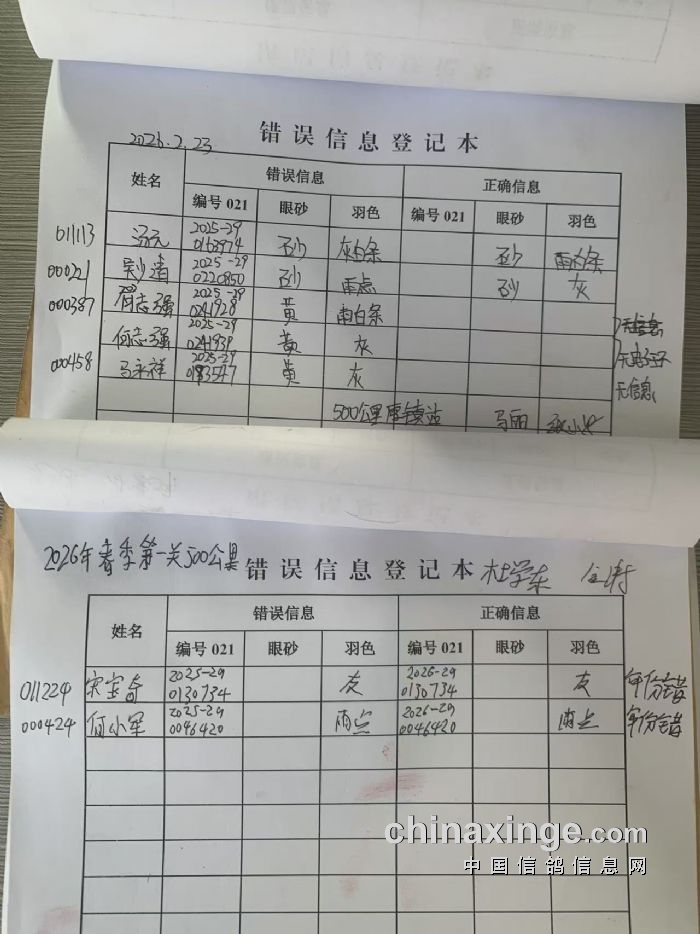 2026.2.23 错误信息登记本
姓名 错误信息 正确信息
编号 021 眼砂 羽色 编号 021 眼砂 羽色
011113 冯元 2025-29 0168974 砂 灰白条 砂 雨白条
000221 2025-29 0220850 砂 雨点 砂 灰
000387 何志强 2025-29 0241928 黄 雨白条 无信息
何志强 2025-29 0241939 黄 灰 无电子环
000458 马永祥 2025-29 黄 灰 无信息
500公里 马丽
2026年春季第一关500公里 错误信息登记本 杜学东
姓名 错误信息 正确信息
编号 021 眼砂 羽色 编号 021 眼砂 羽色
011224 宋宝奇 2025-29 0130734 灰 2026-29 0130734 灰 年份错
000424 何小军 2025-29 0046420 雨点 2026-29 0046420 雨点 年份错
chinaxinge.com
中国信鸽信息网